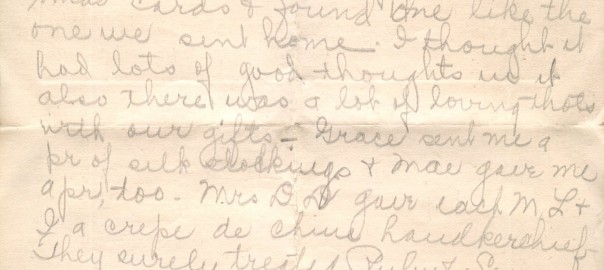 Xmas cards & found one like the
one we sent home. I thought it
had lots of good thoughts in it
also there was a lot of loving thots
with our gifts - Grace sent me a
pr of silk stockings & Mae gave me
a pr, too - Mrs D. D gave each M, L &
I a crepe de chine handkerchief
They surely treat